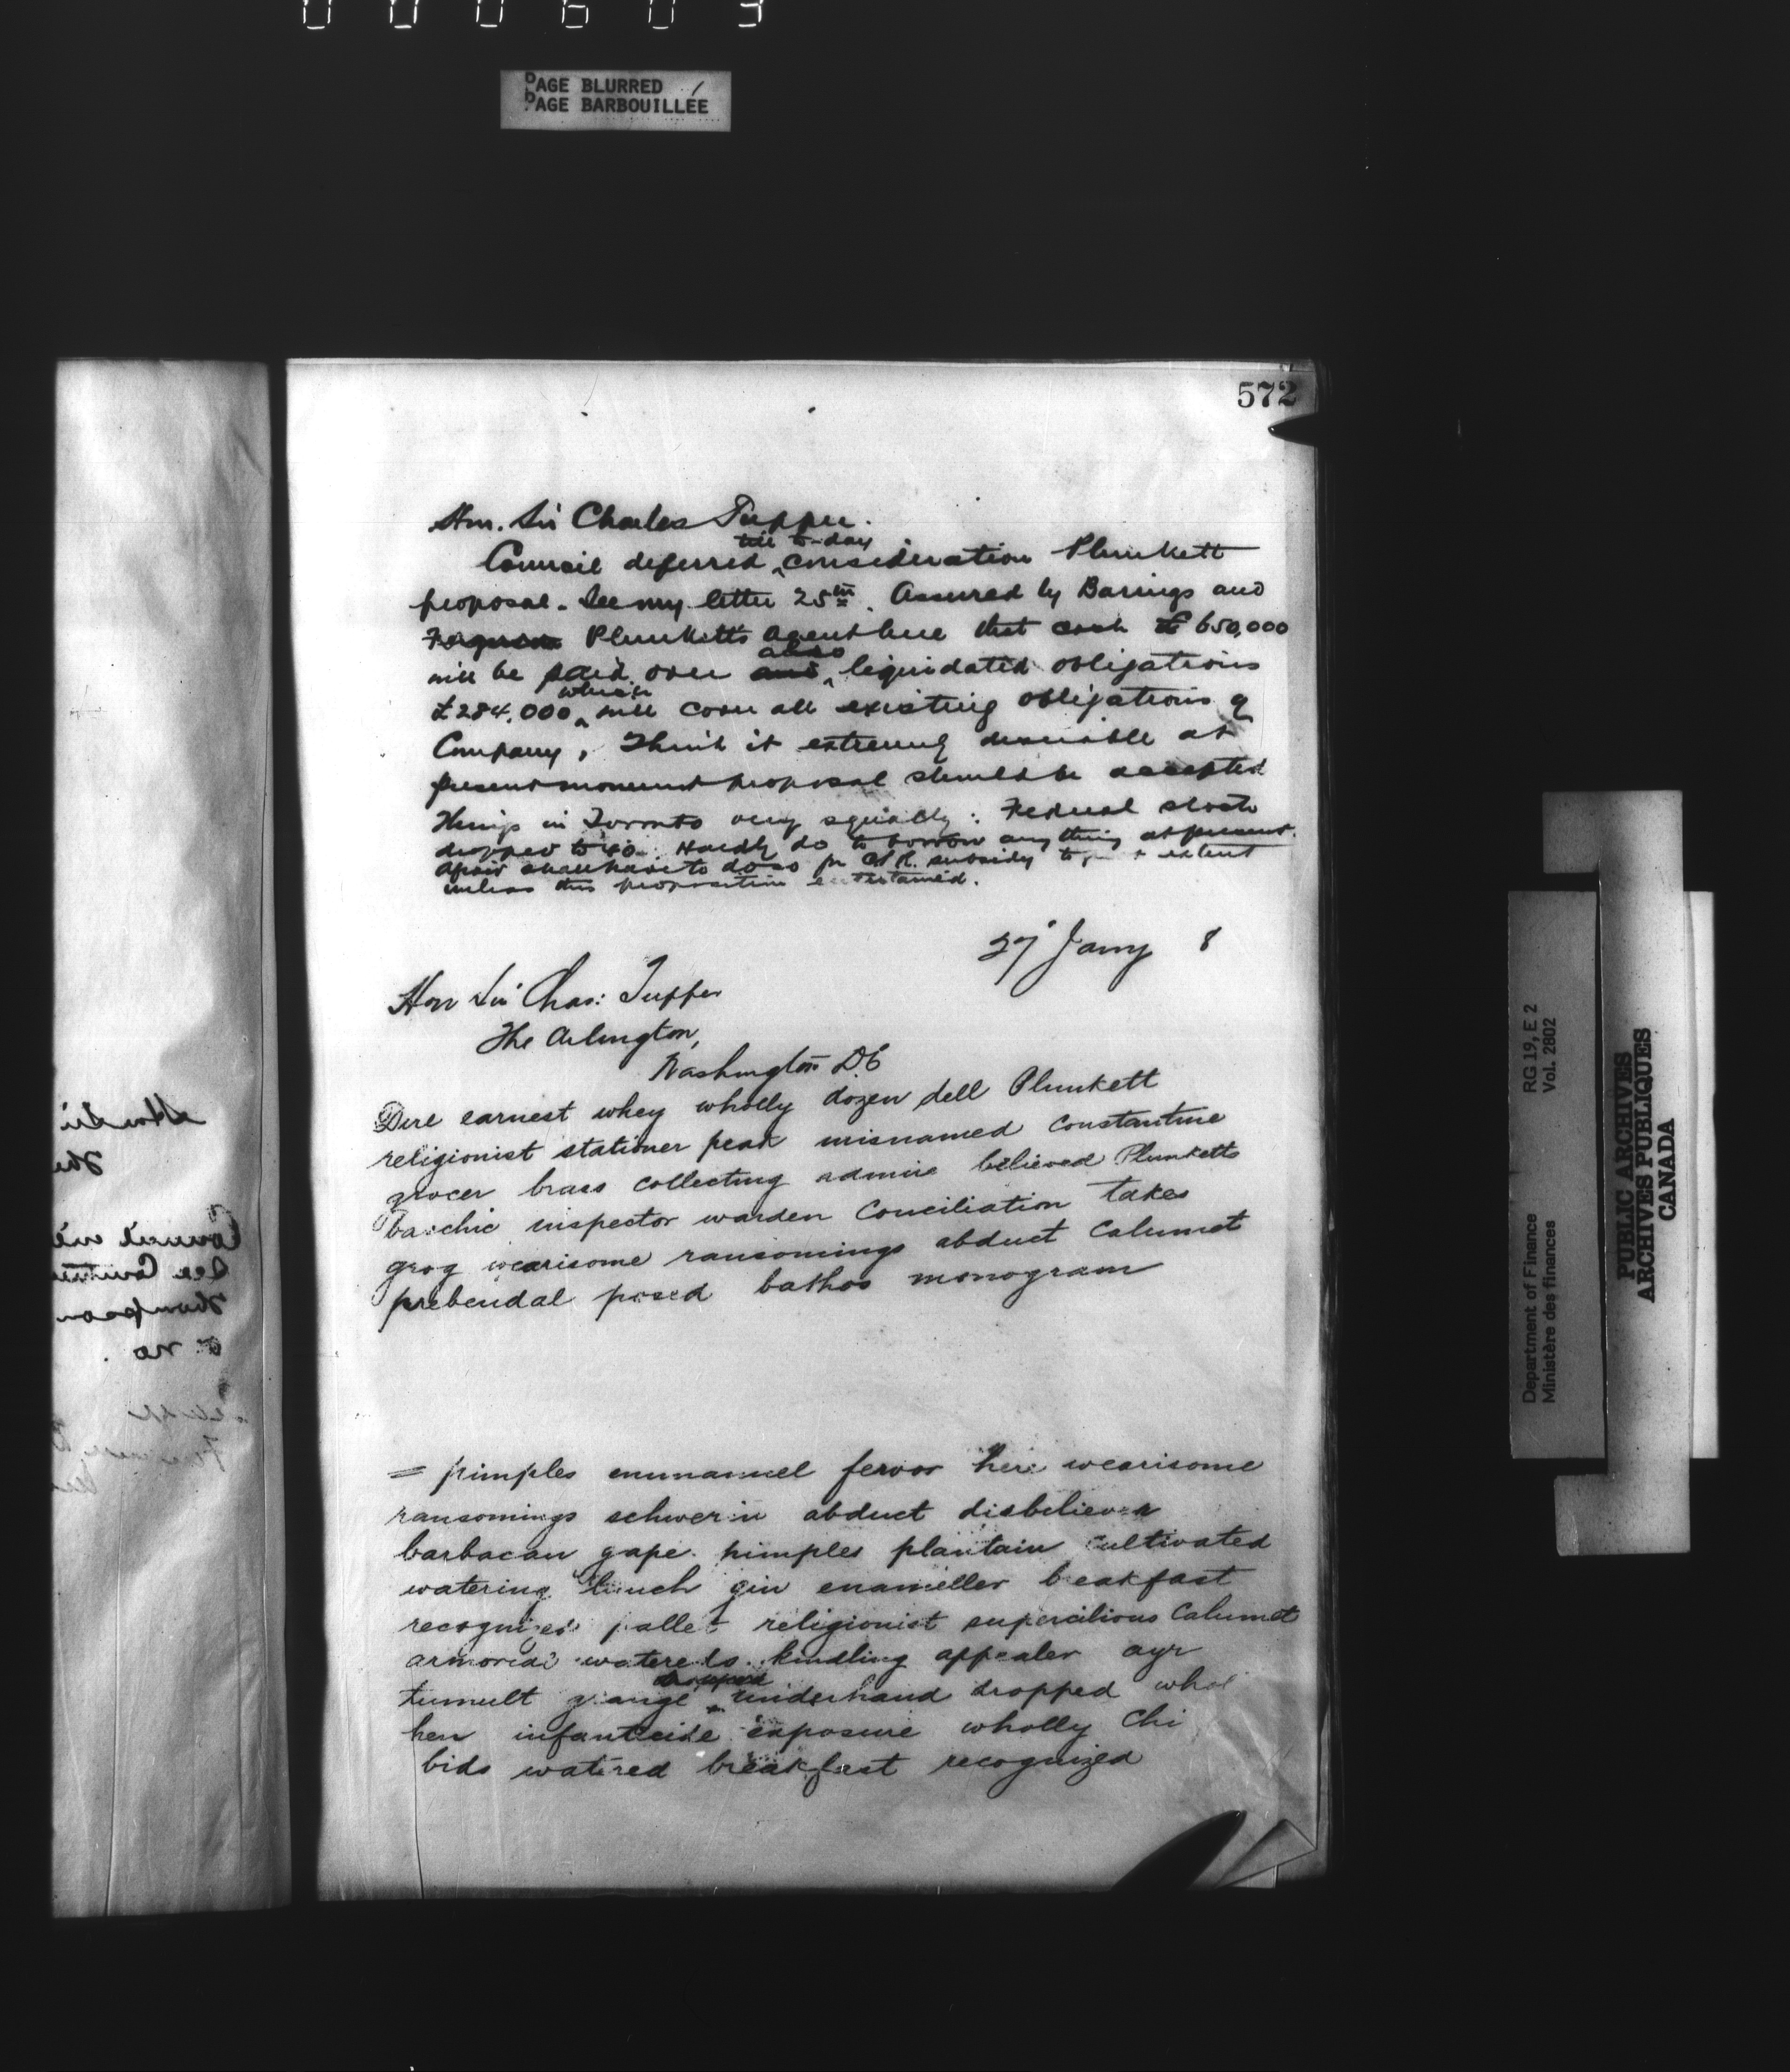 PAGE BLURRED
PAGE BARBOUILLÉE
572
Hon. Sir Charles Tupper.
till to-day
Council deferred consideration Plunkett
proposal. See my letter 25th. Assured by Barings and
Plunketts agent here that cash £650,000
also
will be paid over and liquidated obligations
which
£284,000 will cover all existing obligations of
Company, Think it extremely desirable at
present moment proposal should be accepted
Things in Toronto very squially: Federal stock
dropped to 40. Hardly do to borrow anything at present.
shall have to do so for CPR. subsidy to extent
unless this proposition entertained.
27 Jany 8
Hon Sir Chas: Tupper
The Arlington,
Washington D.C
Dire earnest whey wholly dozen dell Plunkett
religionist stationer peak misnamed Constantine
grocer brass collecting admire believed Plunketts
bacchic inspector warden Conciliation takes
grog wearisome ransomings abduct Calumet
prebendal posed bathos monogram
= pimples emmanuel fervor here wearisome
ransomings schwerin abduct disbeliever
barbacan gape pimples plantain cultivated
watering lunch gin enameller breakfast
recognized pallet religionist supercilious Calumet
armorial kindling appealer ayr
dropped
tumult grange underhand dropped
hen infanticide exposure wholly Chi
bids watered breakfast recognized
RG 19, E 2
Vol. 2802
Department of Finance
Ministère des finances
PUBLIC ARCHIVES
ARCHIVES PUBLIQUES
CANADA